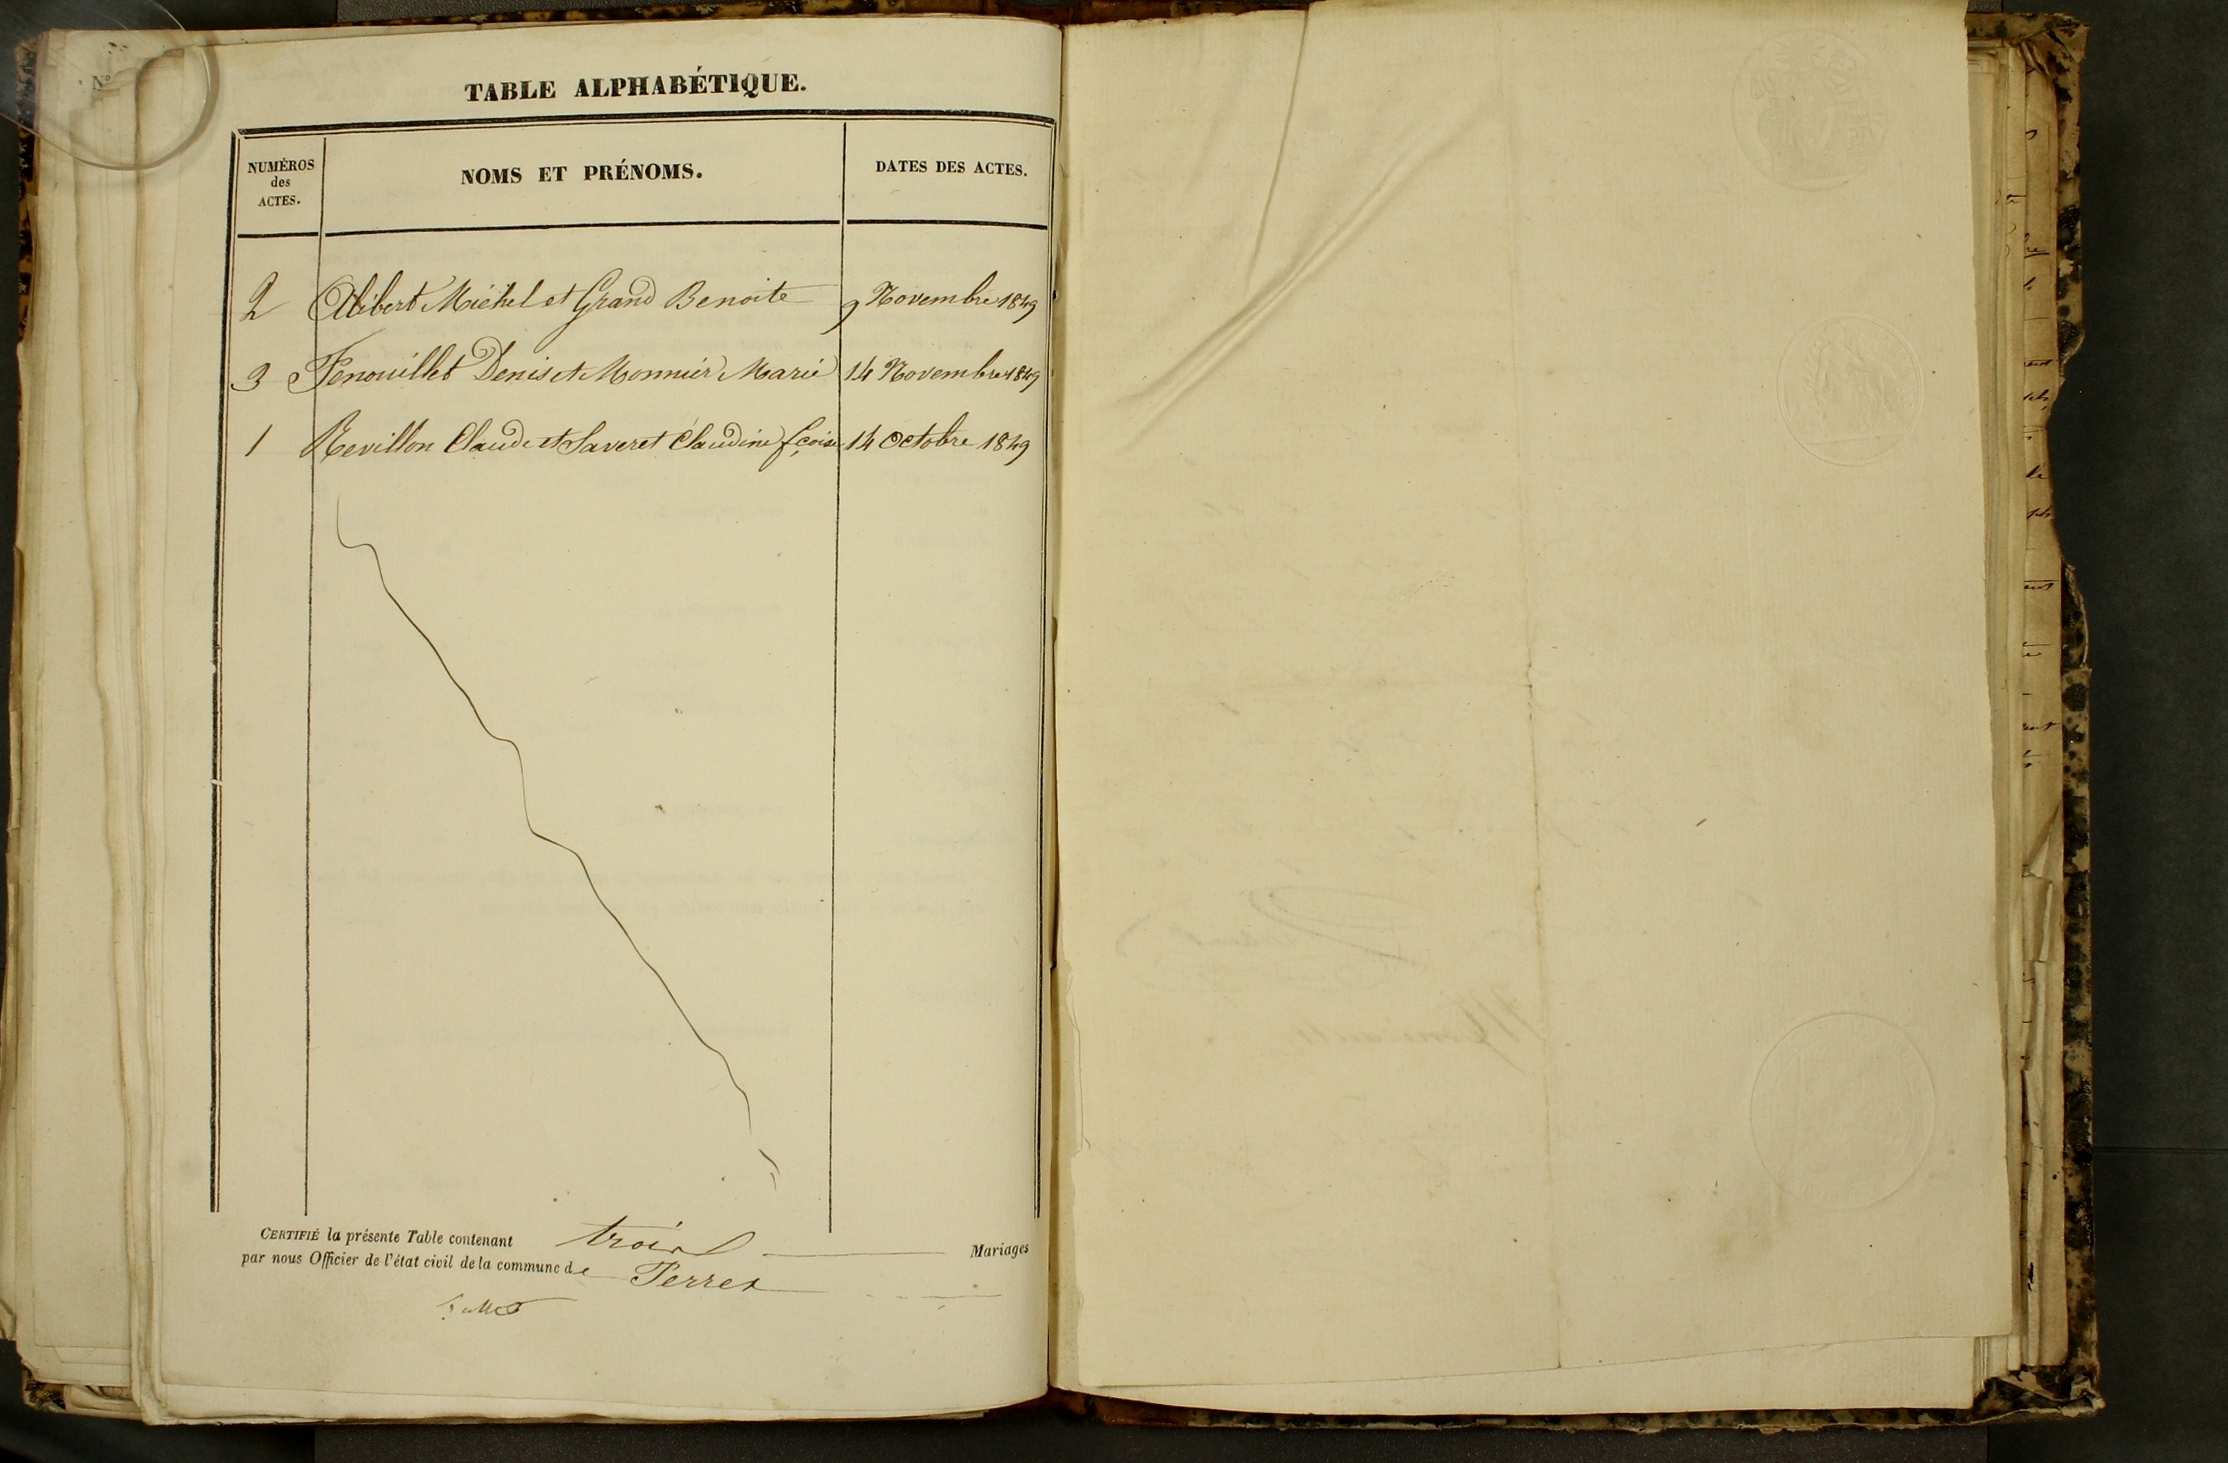 N°
TABLE ALPHABÉTIQUE.
NUMÉROS
des
ACTES.
NOMS ET PRÉNOMS.
DATES DES ACTES.
2 Alibert Michel et Grand Benoite 9 Novembre 1849
3 Fenouillet Denis et Monnier Marie 14 Novembre 1849
1 Revillon Claude et Saveret Claudine fçoise 14 Octobre 1849
CERTIFIÉ la présente Table contenant trois Mariages
par nous Officier de l'état civil de la commune de Perrex